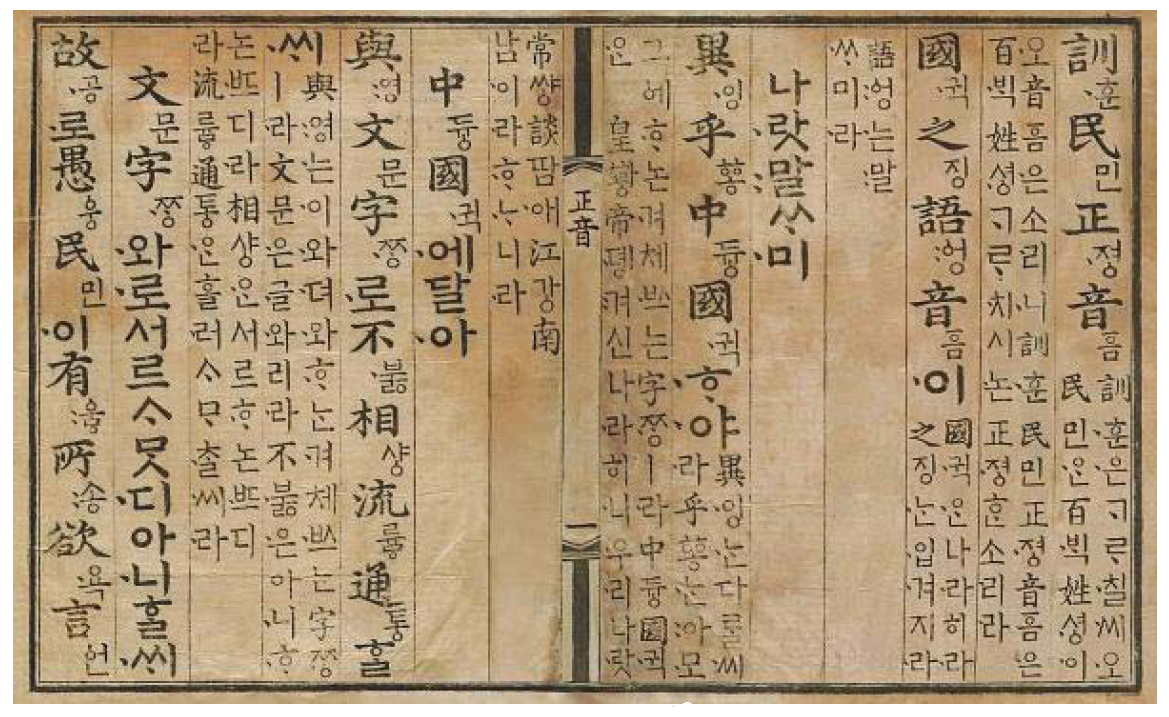 訓훈民민正졍音ᅙᅳᆷ 訓훈은ᄀᆞᄅᆞ칠씨오
民민ᄋᆞᆫ百ᄇᆡᆨ姓셩이
오音ᅙᅳᆷ은소리니訓훈民민正졍音ᅙᅳᆷ은
百ᄇᆡᆨ姓셩ᄀᆞᄅᆞ치시논正졍ᄒᆞᆫ소리라
國귁之징語엉音ᅙᅳᆷ이 國귁ᄋᆞᆫ나라히라
之징ᄂᆞᆫ입겨지라
語엉는말
ᄊᆞ미라
나랏말ᄊᆞ미
異잉乎ᅘᅩᆼ中듀ᇰ國귁ᄒᆞ야 異잉ᄂᆞᆫ다ᄅᆞᆯ씨
라乎ᅘᅩᆼ는아모
그에ᄒᆞ논겨체ᄡᅳ는字ᄍᆞᆼㅣ라中듀ᇰ國귁
ᄋᆞᆫ皇ᅘᅪᇰ帝뎽겨신나라히니우리나랏
正音
一
常쌰ᇰ談땀애江가ᇰ南
남이라ᄒᆞᄂᆞ니라
中듀ᇰ國귁에달아
與영文문字ᄍᆞᆼ로不부ᇙ相샤ᇰ流류ᇢ通토ᇰᄒᆞᆯ
ᄊᆡ 與영는이와뎌와ᄒᆞᄂᆞᆫ겨체ᄡᅳ는字ᄍᆞᆼ
ㅣ라文문은글와리라不부ᇙ은아니ᄒᆞ
논ᄠᅳ디라相샤ᇰᄋᆞᆫ서르ᄒᆞ논ᄠᅳ디
라流류ᇢ通토ᇰᄋᆞᆫ흘러ᄉᆞᄆᆞᄎᆞᆯ씨라
文문字ᄍᆞᆼ와로서르ᄉᆞᄆᆞᆺ디아니ᄒᆞᆯᄊᆡ
故공로愚웅民민이有우ᇢ所송欲욕言언